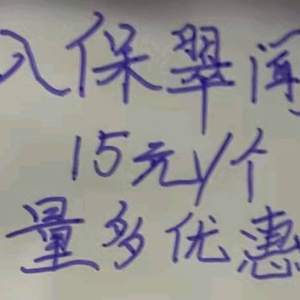 入保翠
15元/个
量多优惠